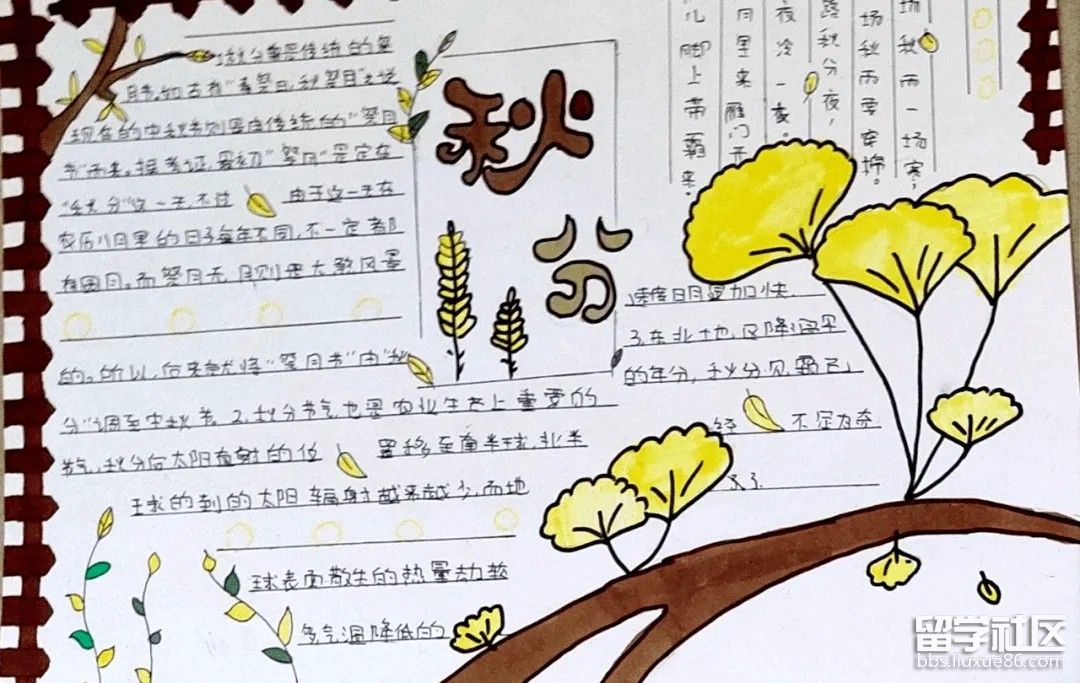 1.秋分曾是传统的祭
月节,如古有"春祭日,秋祭月"之说
现在的中秋节则是由传统的"祭月
节"而来。据考证,最初"祭月"是定在
"秋分"这一天,不过 由于这一天在
农历八月里的日子每年不同,不一定都
有圆月。而祭月无月则是大煞风景
的。所以,后来就将"祭月节"由"秋
分"调至中秋节。2.秋分节气也是农业生产上重要的
节气,秋分后太阳直射的位 置移至南半球,北半
球的到的太阳辐射越来越少,而地
球表面散失的热量却较
多气温降低的
速度明显加快.
3.东北地区降温早
的年分,秋分见霜已
经 不足为奇
了.
秋
分
场秋雨一场寒;
场秋雨要穿棉。
路秋分夜,
夜冷一夜。
月里来雁门开
儿脚上带霜来。
留学社区
bbs.liuxue86.com